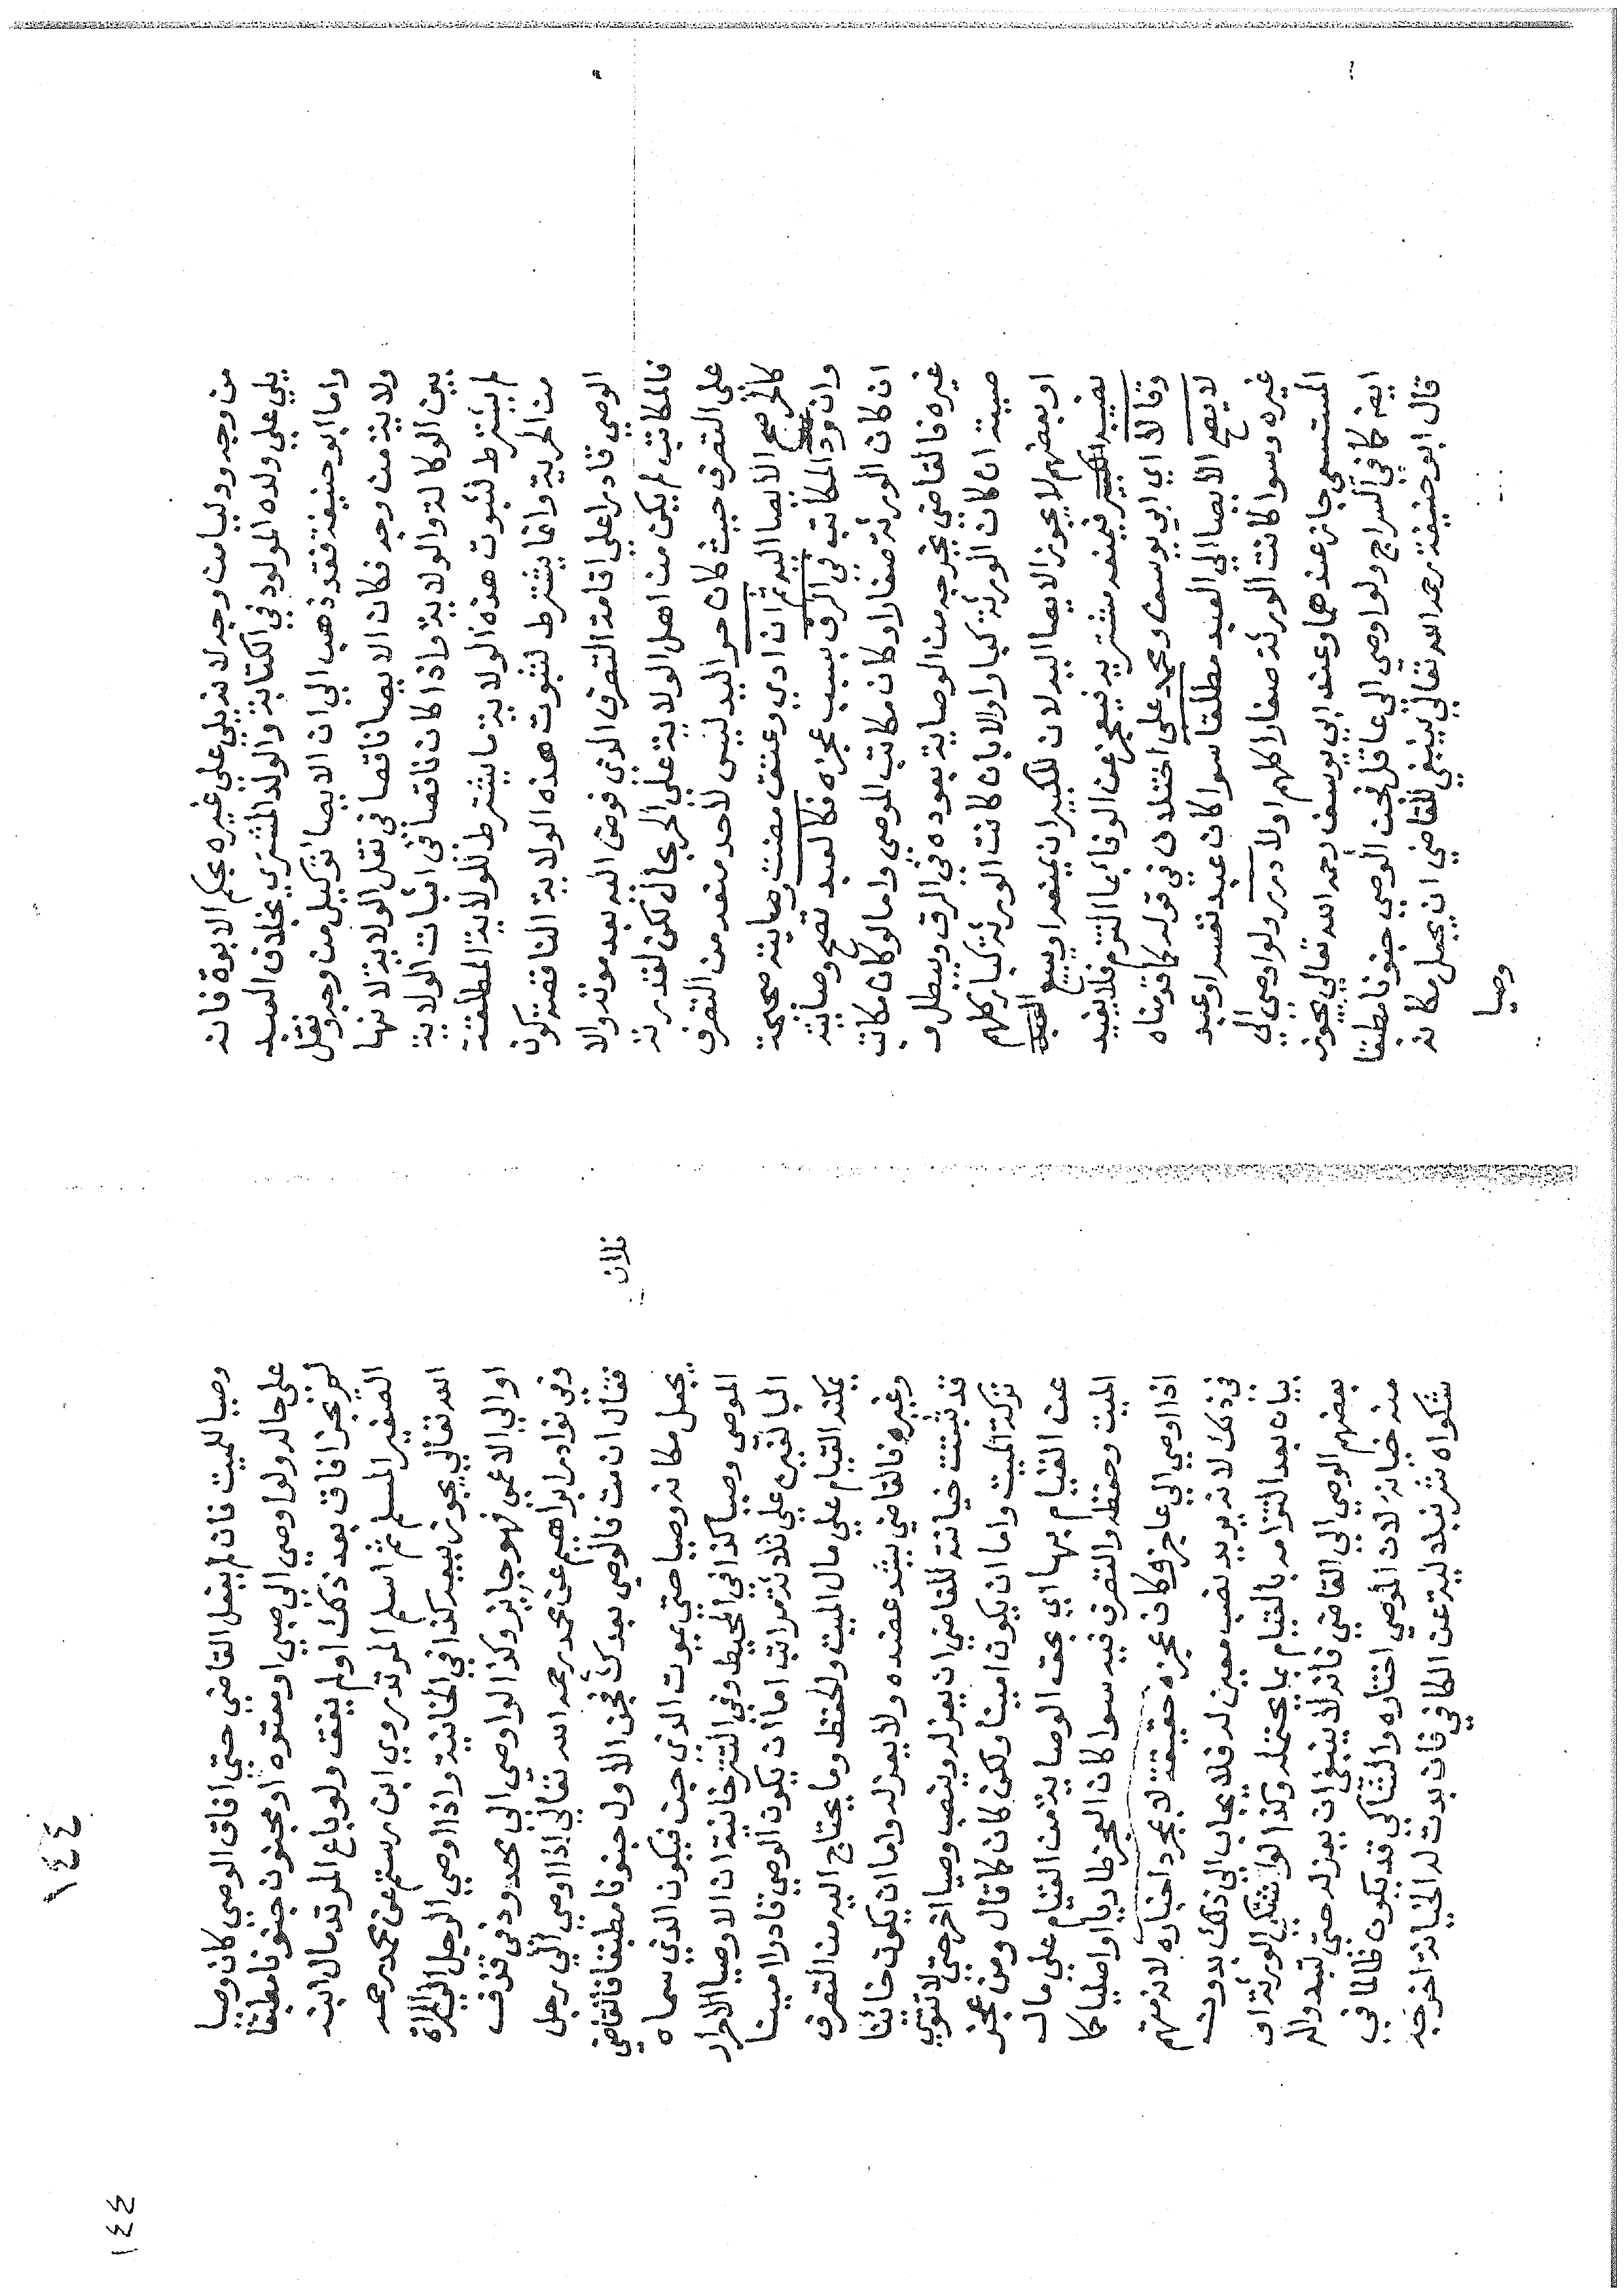 من وجه ووليا من وجه لانه يلي علي غيره بحكم الابوة فانه
يلي علي ولده المولود في الكتابة والولد المشتري بخلاف العبد
واما ابو حنيفة فقد ذهب الي ان الايصا توكيل من وجه ونقل
ولاية من وجه فكان الايصا ناقصا في نقل الولاية لانها
بين الوكالة والولاية واذا كان ناقصا في اثبات الولاية
لم يشترط لثبوت هذه الولاية ما يشترط للولاية المطلقة
من الحرية وانما يشترط لثبوت هذه الولاية الناقصة كون
الوصي قادرا علي اقامة التصرف الذي فوض اليه بعد موته والا
فالمكاتب لم يكن من اهل الولاية علي الحر بحال لكن لقدرته
على التصرف حيث كان حر اليد ليس لاحد منعه من التصرف
كالحر صح الايصا اليه ثم ان ادي وعتق مضت وصايته صحيحة
وان المكاتب في الرق بسبب عجزه فكالعبد تصح وصايته
ان كان الورثة صغارا وكان مكاتب الموصي واما لو كان مكاتب
غيره فالقاضي يخرجه من الوصاية بعوده في الرق ويبطل و
صيته ان كان الورثة كبارا والا بان كانت الورثة كبار كلهم
او بعضهم لا يجوز الايصا اليه لان للكبير ان يمنعه او يبيع
نصيبه فيمنعه مشتريه فيعجز عن الوفا بما التزم فلا يفيد
وقالا اي ابي يوسف ومحمد على اختلاف في قوله كما قدمناه
لا يصح الايصا الي العبد مطلقا سوا كان عبد نفسه او عبد
غيره وسوا كانت الورثة صغارا كلهم او لا درر ولو اوصي الي
المستسعي جاز عندهما وعند ابي يوسف رحمه الله تعالي يجوز
ايضا كما في السراج ولو اوصي الي عاقل فجن الوصي جنونا مطبقا
قال ابو حنيفة رحمه الله تعالي ينبغي للقاضي ان يجعل مكانه
وصيا
١٤٤
١٤٤
وصيا للميت فان لم يفعل القاضي حتي افاق الوصي كان وصيا
على حاله ولو اوصي الي صبي او معتوه او مجنون جنونا مطبقا
لم يجز افاق بعد ذلك او لم يفق ولو باع المرتد مال ابنه
الصغير المسلم ثم اسلم المرتد روي ابن رستم عن محمد رحمه
الله تعالي يجوز بيعه كذا في الخانية واذا اوصي الرجل الي امراة
او الي الاعمي فهو جايز وكذا لو اوصي الي محدود في قذف
وفي نوادر ابراهيم عن محمد رحمه الله تعالي اذا اوصي الي رجل
فقال ان مت فالوصي بعدك فلان فجن الاول جنونا مطبقا فالقاضي
يجعل مكانه وصيا حتي يموت الذي جن فيكون الذي سماه
الموصي وصيا كذا في المحيط وفي التترخانية ان الاوصيا الاحرار
البالغين علي ثلاثة مراتب اما ان يكون الوصي قادرا امينا
يمكنه القيام علي مال الميت والحفظ وما يحتاج اليه من التصرف
وغيره فالقاضي يشد عضده ولا يعزله واما ان يكون خائنا
قد ثبتت خيانته للقاضي ان يعزله وينصب وصيا اخر حتي لا تتوي
تركة الميت واما ان يكون امينا ولكن كان كما قال ومن عجز
عن القيام بها اي بحق الوصاية من القيام علي مال
الميت وحفظه والتصرف فيه سوا كان العجز طاريا او اصليا كما
اذا اوصي الي عاجز وكان عجزه حقيقة لا بمجرد اخباره لانه متهم
في ذلك لانه يريد نصب معين له فلا يجاب الي ذلك بدون
بيان بعد التزامه بالقيام بما يحتمله وكذا لو اشتكي الورثة او
بعضهم الوصي الي القاضي فانه لا ينبغي ان يعزله حتي تبدو له
منه خيانة لان الموصي اختاره والشاكي قد يكون ظالما في
شكواه شرنبلالية عن الكافي فان بدت له الخيانة اخرجه